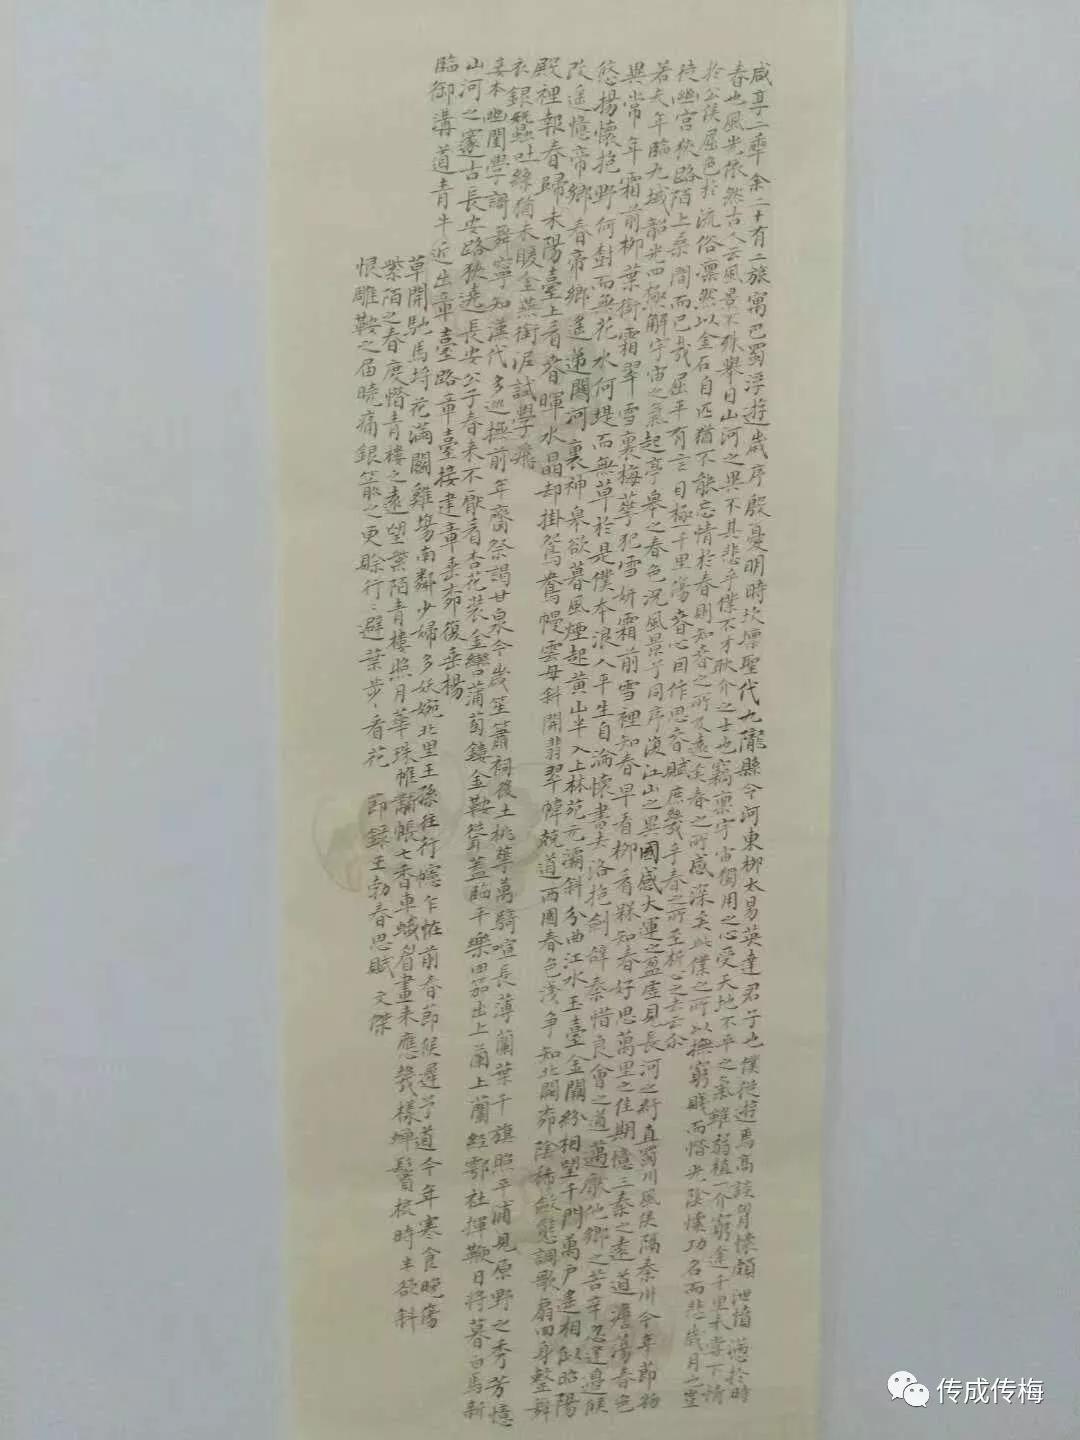 咸亨二年余二十有二旅寓巴蜀浮遊歲序殷憂明時坎壈聖代九隴縣令河東柳太易英達君子也僕從遊焉高談胷懷頗洩憤懣於時
春也風光依然古人云風景不殊舉目山河之異不其悲乎僕不才耿介之士也竊稟宇宙獨用之心受天地不平之氣雖弱植一介窮途千里未嘗下情
於公侯屈色於流俗凛然以金石自匹猶不能忘情於春則知春之所及遠矣春之所感深矣此僕之所以撫窮賤而惜光陰懷功名而悲歲月也豈
徒幽宮狹路陌上桑間而已哉屈平有言目極千里傷春心因作思春賦庶幾乎春之所至析心之去云尓
若夫年臨九域韶光四極解宇宙之氣起亭皋之春色況風景兮同序復江山之異國感大運之盈虛見長河之紆直蜀川風候隔秦川今年節物
異常年霜前柳葉銜霜翠雪裏梅華犯雪妍霜前雪裡知春早看柳看梅知春好思萬里之佳期憶三秦之遠道澹蕩春色
悠揚懷抱野何樹而無花水何堤而無草於是僕本浪人平生自淪懷書去洛抱劍辭秦惜良會之道邁厭他鄉之苦辛忽逢邊候
改遥憶帝鄉春帝鄉遥遞關河裏神皋欲暮風煙起黃山半入上林苑元灞斜分曲江水玉臺金闕紛相望千門萬戶遥相似昭陽
殿裡報春歸未陽臺上看春暉水晶却掛鴛鴦幔雲母斜開翡翠幃競道西園春色淺爭知北闕夯陰稀斂態調歌扇回身整舞
衣銀蠶吐絲猶未暖金燕銜泥試學飛
妾本幽閨學謌舞寧知漢代多巡撫前年齋祭謁甘泉今歲笙簫祠後土桃華萬騎喧長薄蘭葉千旗照平浦見原野之秀芳憶
山河之邃古長安路狹遶長安公子春來不厭看杏花裝金轡蒲萄鏤金鞍聳蓋臨平樂田笳出上蘭上蘭經鄠杜揮鞭日將暮白馬新
臨御溝道青牛近出章臺路章臺接建章垂夯復垂楊
草開馳馬埒花滿鬭雞場南鄰少婦多妖婉北里王孫往行幰乍怪前春節候遲兮道今年寒食晚傷
紫陌之春度惜青樓之遠望紫陌青樓照月華珠帷黼帳七香車蛾眉畫來應幾樣蟬鬢梳時半欲斜
恨雕鞍之届曉痛銀箭之更賒行行避葉步步看花 節録王勃春思賦 文傑
传成传梅